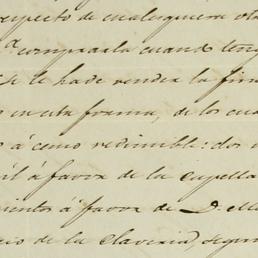 respecto de cualesquiera ota
comprarla cuando teng
se le ha de vender la fin
en esta forma, de los cua
á como redimible: dos
il á favor de la Capella
ientos á favor de D.
cio de la Claveria, segun